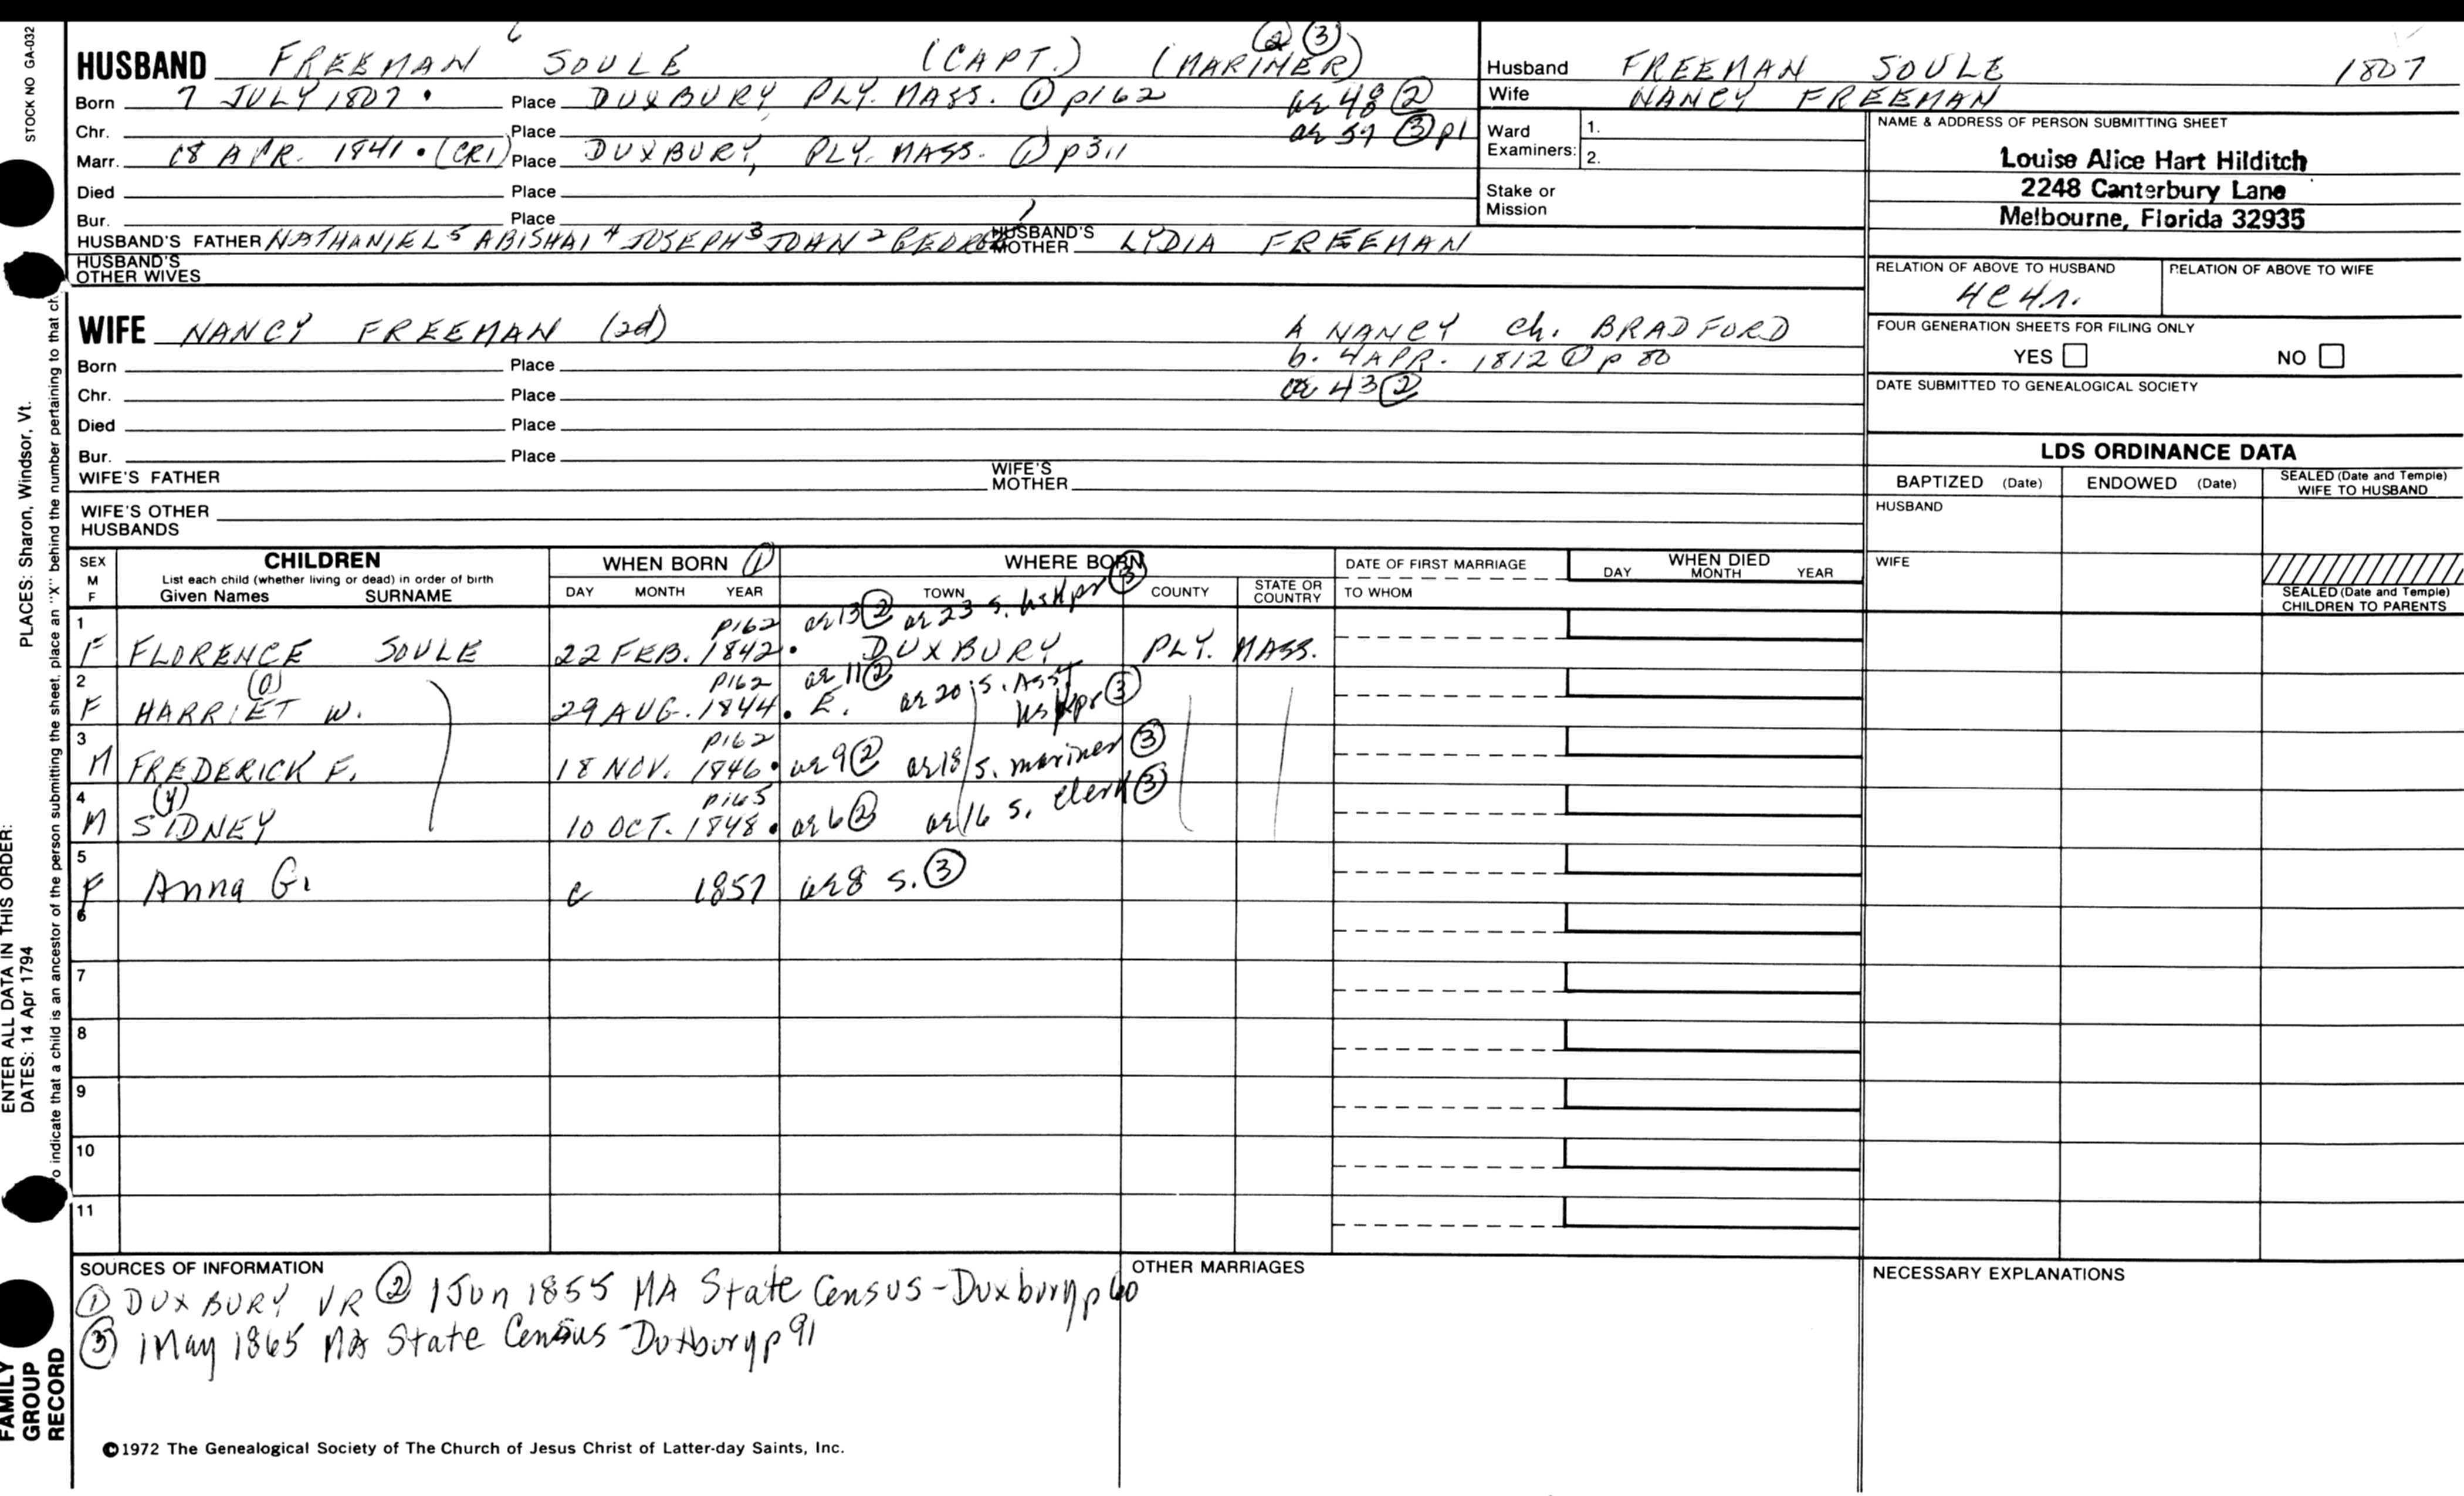 STOCK NO GA-032
HUSBAND FREEMAN 6 SOULE (CAPT.) (MARINER) ② ③
Born 7 JULY 1807. Place DUXBURY PLY. MASS. ① p162 ae 48 ②
Chr. Place ae 57 ③ p1
Marr. 18 APR. 1841. (CR1) Place DUXBURY, PLY. MASS. ① p311
Died Place
Bur. Place
HUSBAND'S FATHER NATHANIEL 5 ABISHAI 4 JOSEPH 3 JOHN 2 GEORGE 1 HUSBAND'S MOTHER LYDIA FREEMAN
HUSBAND'S OTHER WIVES
Husband FREEMAN SOULE 1807
Wife NANCY FREEMAN
Ward Examiners: 1.
2.
Stake or Mission
NAME & ADDRESS OF PERSON SUBMITTING SHEET
Louise Alice Hart Hilditch
2248 Canterbury Lane
Melbourne, Florida 32935
RELATION OF ABOVE TO HUSBAND RELATION OF ABOVE TO WIFE
4c4r.
FOUR GENERATION SHEETS FOR FILING ONLY
YES NO
DATE SUBMITTED TO GENEALOGICAL SOCIETY
WIFE NANCY FREEMAN (2d) A NANCY ch. BRADFORD
Born Place b. 4 APR. 1812 ① p 80
Chr. Place ae 43 ②
Died Place
Bur. Place
WIFE'S FATHER WIFE'S MOTHER
WIFE'S OTHER HUSBANDS
LDS ORDINANCE DATA
BAPTIZED (Date) ENDOWED (Date) SEALED (Date and Temple) WIFE TO HUSBAND
HUSBAND
WIFE
SEALED (Date and Temple) CHILDREN TO PARENTS
SEX M F CHILDREN WHEN BORN ① WHERE BORN DATE OF FIRST MARRIAGE WHEN DIED
List each child (whether living or dead) in order of birth
Given Names SURNAME DAY MONTH YEAR TOWN COUNTY STATE OR COUNTRY TO WHOM DAY MONTH YEAR
1 p162 ae 13 ② ae 23 s. hskpr ③
F FLORENCE SOULE 22 FEB. 1842. DUXBURY PLY. MASS.
2 (O) p162 ae 11 ② ae 20 s. Asst hskpr ③
F HARRIET W. 29 AUG. 1844. E.
3 p162
M FREDERICK F. 18 NOV. 1846. ae 9 ② ae 18 s. mariner ③
4 (Y) p165
M SIDNEY 10 OCT. 1848. ae 6 ② ae 16 s. clerk ③
5
F Anna G. c 1857 ae 8 s. ③
6
7
8
9
10
11
SOURCES OF INFORMATION
① DUXBURY VR ② 1 Jun 1855 MA State Census - Duxbury p 60
③ 1 May 1865 MA State Census - Duxbury p 91
OTHER MARRIAGES
NECESSARY EXPLANATIONS
©1972 The Genealogical Society of The Church of Jesus Christ of Latter-day Saints, Inc.
FAMILY GROUP RECORD
ENTER ALL DATA IN THIS ORDER:
DATES: 14 Apr 1794
PLACES: Sharon, Windsor, Vt.
o indicate that a child is an ancestor of the person submitting the sheet, place an "X" behind the number pertaining to that ch